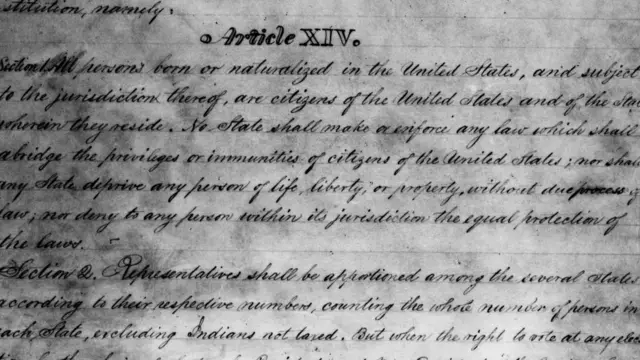 stitution, namely:
Article XIV.
Section 1. All persons born or naturalized in the United States, and subject
to the jurisdiction thereof, are citizens of the United States and of the State
wherein they reside. No State shall make or enforce any law which shall
abridge the privileges or immunities of citizens of the United States; nor shall
any State deprive any person of life, liberty, or property, without due process of
law; nor deny to any person within its jurisdiction the equal protection of
the laws.
Section 2. Representatives shall be apportioned among the several States
according to their respective numbers, counting the whole number of persons in
each State, excluding Indians not taxed. But when the right to vote at any